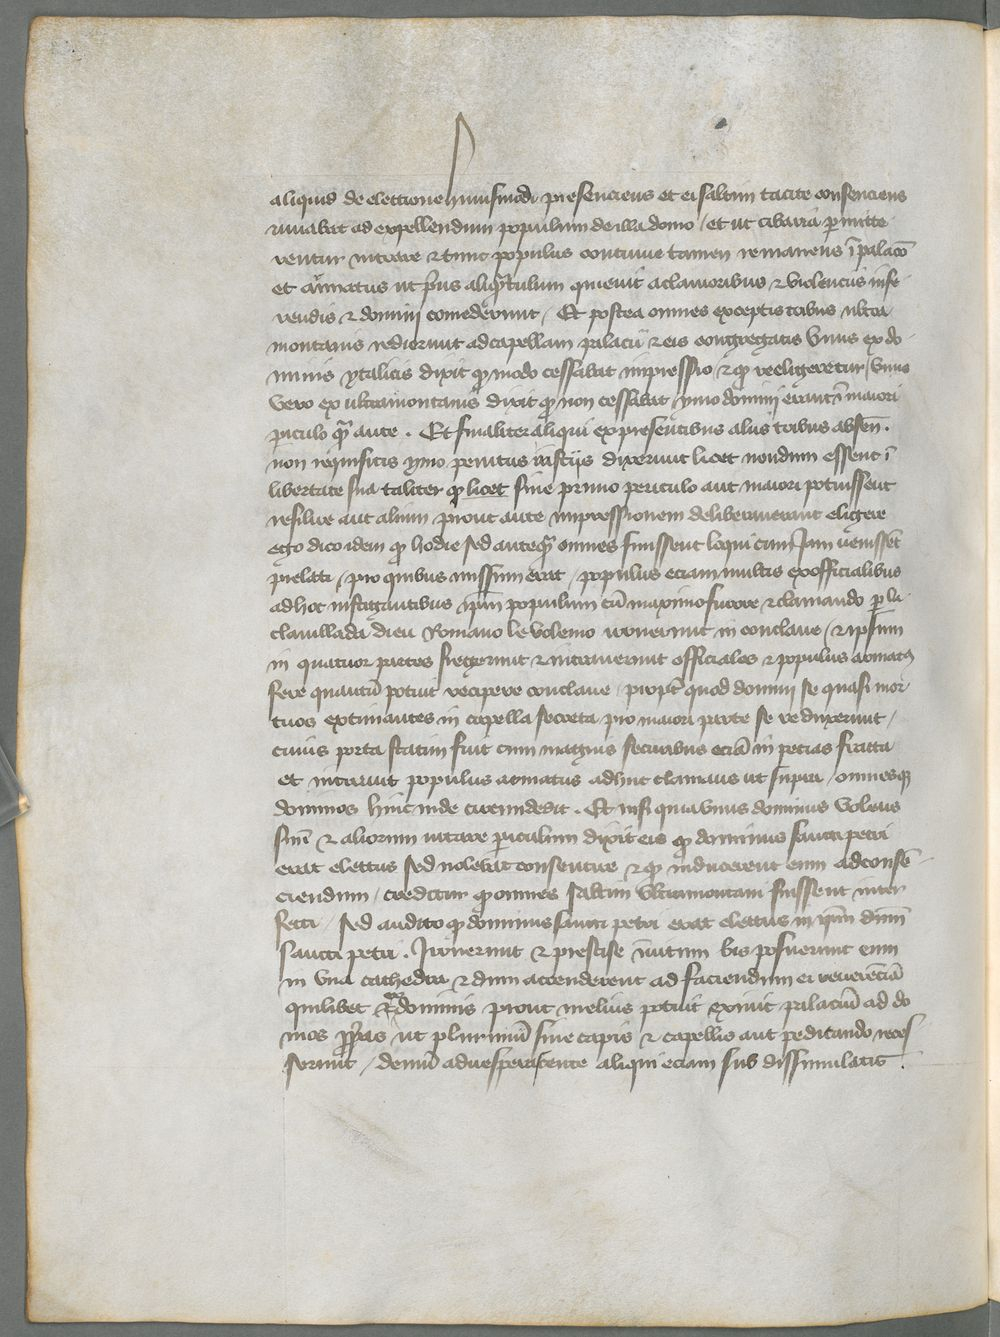 aliquid de electione huiusmodi presenciens et ei saltim tacite consenciens
iuvabat ad expellendum populum de illa domo / et ut cibaria permitte
rentur intrare et tunc populus continue tamen remanens ī palacō
et armatus ut prius aliqūtulum quievit a clamoribus et violenciis infe
rendis et domini comederunt / Et postea omnes exceptis tribus ultra
montanis redierunt ad capellam palacii et eis congregatis Unus ex do
minis ytalicis dixit quod modo cessabat impressio et quod reeligeretur / Unus
vero ex ultramontanis dixit quod non cessabat ymo domini erant ī maiori
periculo quā ante . Et finaliter aliqui ex presentibus aliis tribus absen̄ .
non requisitis ymo penitus insciis dixerunt licet nondum essent ī
libertate sua taliter quod licet sine primo periculo aut maiori potuissent
resilire aut alium prout ante impressionem deliberaverant eligere
ego dico idem quod hodie sed anteqā omnes fuissent loqui cum Jam venissēt
prelati / pro quibus missum erat / populus eciam multis ex officialibus
ad hoc instigantibus ipm̄ populum cū maximo furore et clamando per la
clavillada dieu Romano le volemo irruerunt in conclave / et ipsum
in quatuor partes fregerunt et intraverunt officiales et populus armatus
fere quantū potuit recipere conclave / propt̄ quod domini se quasi mor
tuos extimantes in capella secreta pro maiori parte se reduxerunt /
cuius porta statim fuit cum magnis securibus eciā in pecias fracta
et intravit populus armatus adhuc clamans ut supra / omnesque
dominos hinc inde circumdedit . Et nisi quia unus dominus volens
suū et aliorum vitare periculum dixit eis quod dominus sancti petri
erat electus sed nolebat consentire et quod inducerent eum ad consē
ciendum / creditur quod omnes saltim ultramontani fuissent inter
fecti / sed audito quod dominus sancti petri erat electus in ipm̄ dm̄m
sancti petri . Irruerunt et precise invitum bis posuerunt eum
in una cathedra et dum attenderent ad faciendum ei reverēciā
quilibet ex dominis prout melius potuit exivit palaciū ad do
mos ppria̅s ut plurimū sine capis et capellis aut peditando reces
serunt / demū advesperascente aliqui eciam sub dissimulatis .